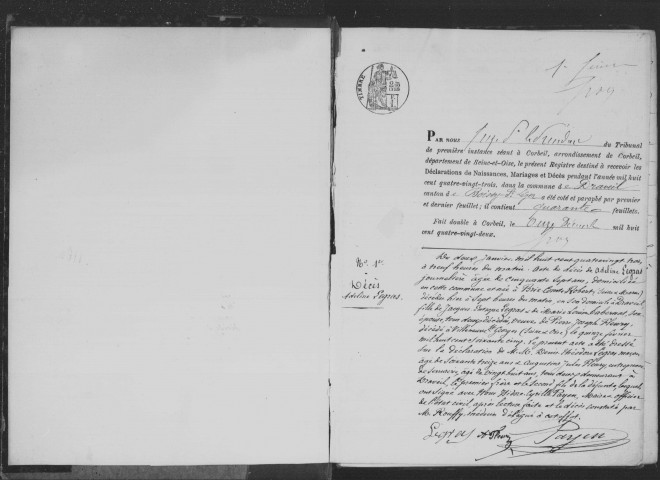 TIMBRE
PAR NOUS Juge du Tribunal
de première instance séant à Corbeil, arrondissement de Corbeil,
département de Seine-et-Oise, le présent Registre destiné à recevoir les
Déclarations de Naissances, Mariages et Décès pendant l'année mil huit
cent quatre-vingt-trois, dans la commune d Draveil
canton d Boissy St Léger a été coté et paraphé par premier
et dernier feuillet; il contient quarante feuillets.
Fait double à Corbeil, le Onze Décembre mil huit
cent quatre-vingt-deux.
No. 1er
Décès
Adeline Legras.
Du deux janvier, mil huit cent quatre vingt trois,
à neuf heures du matin. Acte de décès de Adeline Legras
journalière âgée de cinquante sept ans, domiciliée
en cette commune et née à Brie Comte Robert (Seine et Marne)
décédée hier à sept heures du matin, en son domicile à Draveil
fille de Jacques Legras & de Marie Louise son
épouse, tous deux décédés, veuve de Pierre Joseph Fleury,
décédé à Villeneuve St Georges (Seine & Oise) le quinze février
mil huit cent soixante cinq. Le présent acte a été dressé
sur la déclaration de M.M. Denis Théodore Legras maçon
âgé de soixante treize ans & Augustin Jules Fleury,
âgé de vingt huit ans, tous deux demeurant à
Draveil, le premier frère et le second fils de la défunte, lesquels
ont signé avec nous Cyrille Payen, Maire officier
de l'état civil, après lecture faite et le décès constaté par
M. Rouffy, médecin délégué à cet effet.
Legras A Fleury Payen